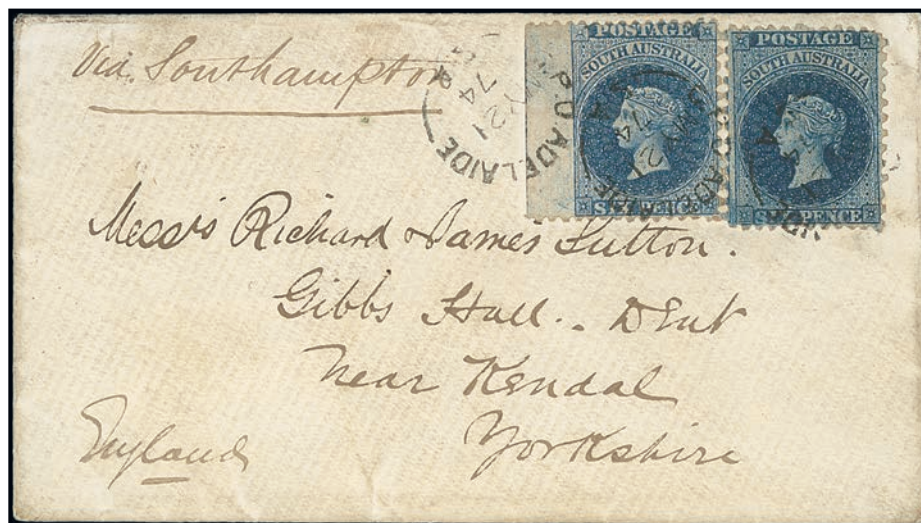 Via Southampton
G.P.O. ADELAIDE
S.A
MY 21
74
POSTAGE
SOUTH AUSTRALIA
SIXPENCE
POSTAGE
SOUTH AUSTRALIA
SIXPENCE
Mess's Richard & James Sutton.
Gibbs Hall.. Dent
near Kendal
Yorkshire
England